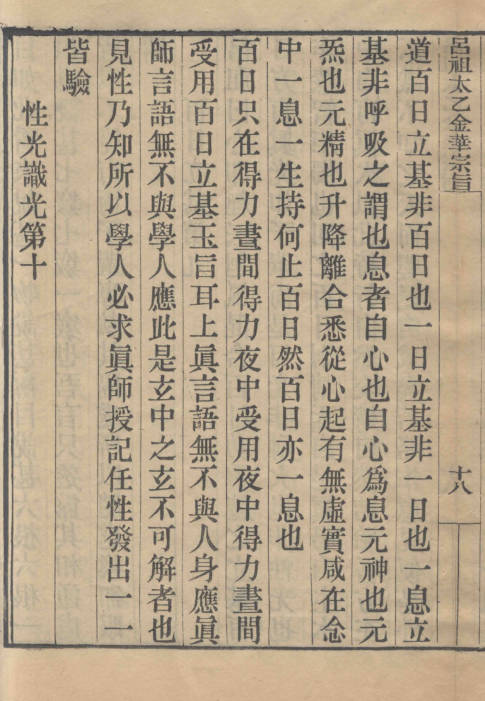 呂祖太乙金華宗旨
十八
道百日立基非百日也一日立基非一日也一息立
基非呼吸之謂也息者自心也自心爲息元神也元
炁也元精也升降離合悉從心起有無虛實咸在念
中一息一生持何止百日然百日亦一息也
百日只在得力晝間得力夜中受用夜中得力晝間
受用百日立基玉旨耳上眞言語無不與人身應眞
師言語無不與學人應此是玄中之玄不可解者也
見性乃知所以學人必求眞師授記任性發出一一
皆驗
性光識光第十